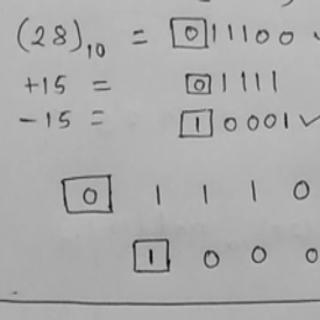 (28)₁₀ = 0 1 1 1 0 0
+15 = 0 1 1 1 1
-15 = 1 0 0 0 1 ✓
0 1 1 1 0
1 0 0 0